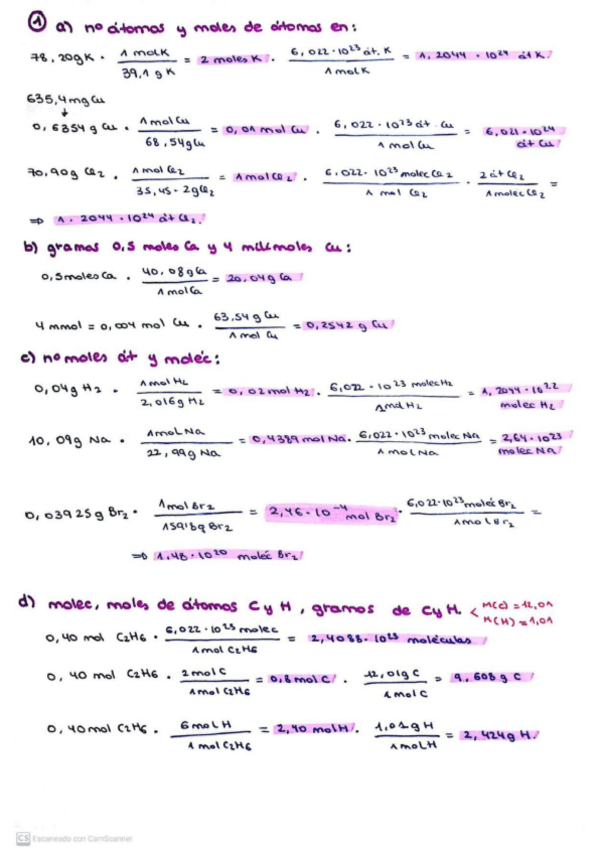 ① a) nº átomos y moles de átomos en:
78,20g K · 1 mol K / 39,1 g K = 2 moles K. · 6,022·10²³ át. K / 1 mol K = 1,2044 · 10²⁴ át K.
635,4 mg Cu
↓
0,6354 g Cu · 1 mol Cu / 68,54g Cu = 0,01 mol Cu. · 6,022·10²³ át Cu / 1 mol Cu = 6,021·10²⁴ át Cu
70,90g Cl₂ · 1 mol Cl₂ / 35,45·2g Cl₂ = 1 mol Cl₂. · 6.022·10²³ molec Cl₂ / 1 mol Cl₂ · 2 át Cl₂ / 1 molec Cl₂ =
⇒ 1.2044·10²⁴ át Cl₂.
b) gramos 0,5 moles Ca y 4 milimoles Cu:
0,5 moles Ca · 40,08g Ca / 1 mol Ca = 20,04g Ca
4 mmol = 0,004 mol Cu · 63,54 g Cu / 1 mol Cu = 0,2542 g Cu
c) nº moles át y moléc:
0,04g H₂ · 1 mol H₂ / 2,016g H₂ = 0,02 mol H₂. · 6,022·10²³ molec H₂ / 1 mol H₂ = 1,2044·10²² molec H₂
10,09g Na · 1 mol Na / 22,99g Na = 0,4389 mol Na. · 6,022·10²³ molec Na / 1 mol Na = 2,64·10²³ molec Na
0,03925g Br₂ · 1 mol Br₂ / 159'6g Br₂ = 2,46·10⁻⁴ mol Br₂ · 6,022·10²³ moléc Br₂ / 1 mol Br₂ =
⇒ 1.48·10²⁰ moléc Br₂
d) molec, moles de átomos C y H, gramos de C y H. < M(C) = 12,01 M(H) = 1,01
0,40 mol C₂H₆ · 6,022·10²³ molec / 1 mol C₂H₆ = 2,4088·10²³ moléculas
0,40 mol C₂H₆ · 2 mol C / 1 mol C₂H₆ = 0,8 mol C. · 12,01g C / 1 mol C = 9,608g C
0,40 mol C₂H₆ · 6 mol H / 1 mol C₂H₆ = 2,40 mol H. · 1,01g H / 1 mol H = 2,424g H.
CS Escaneado con CamScanner